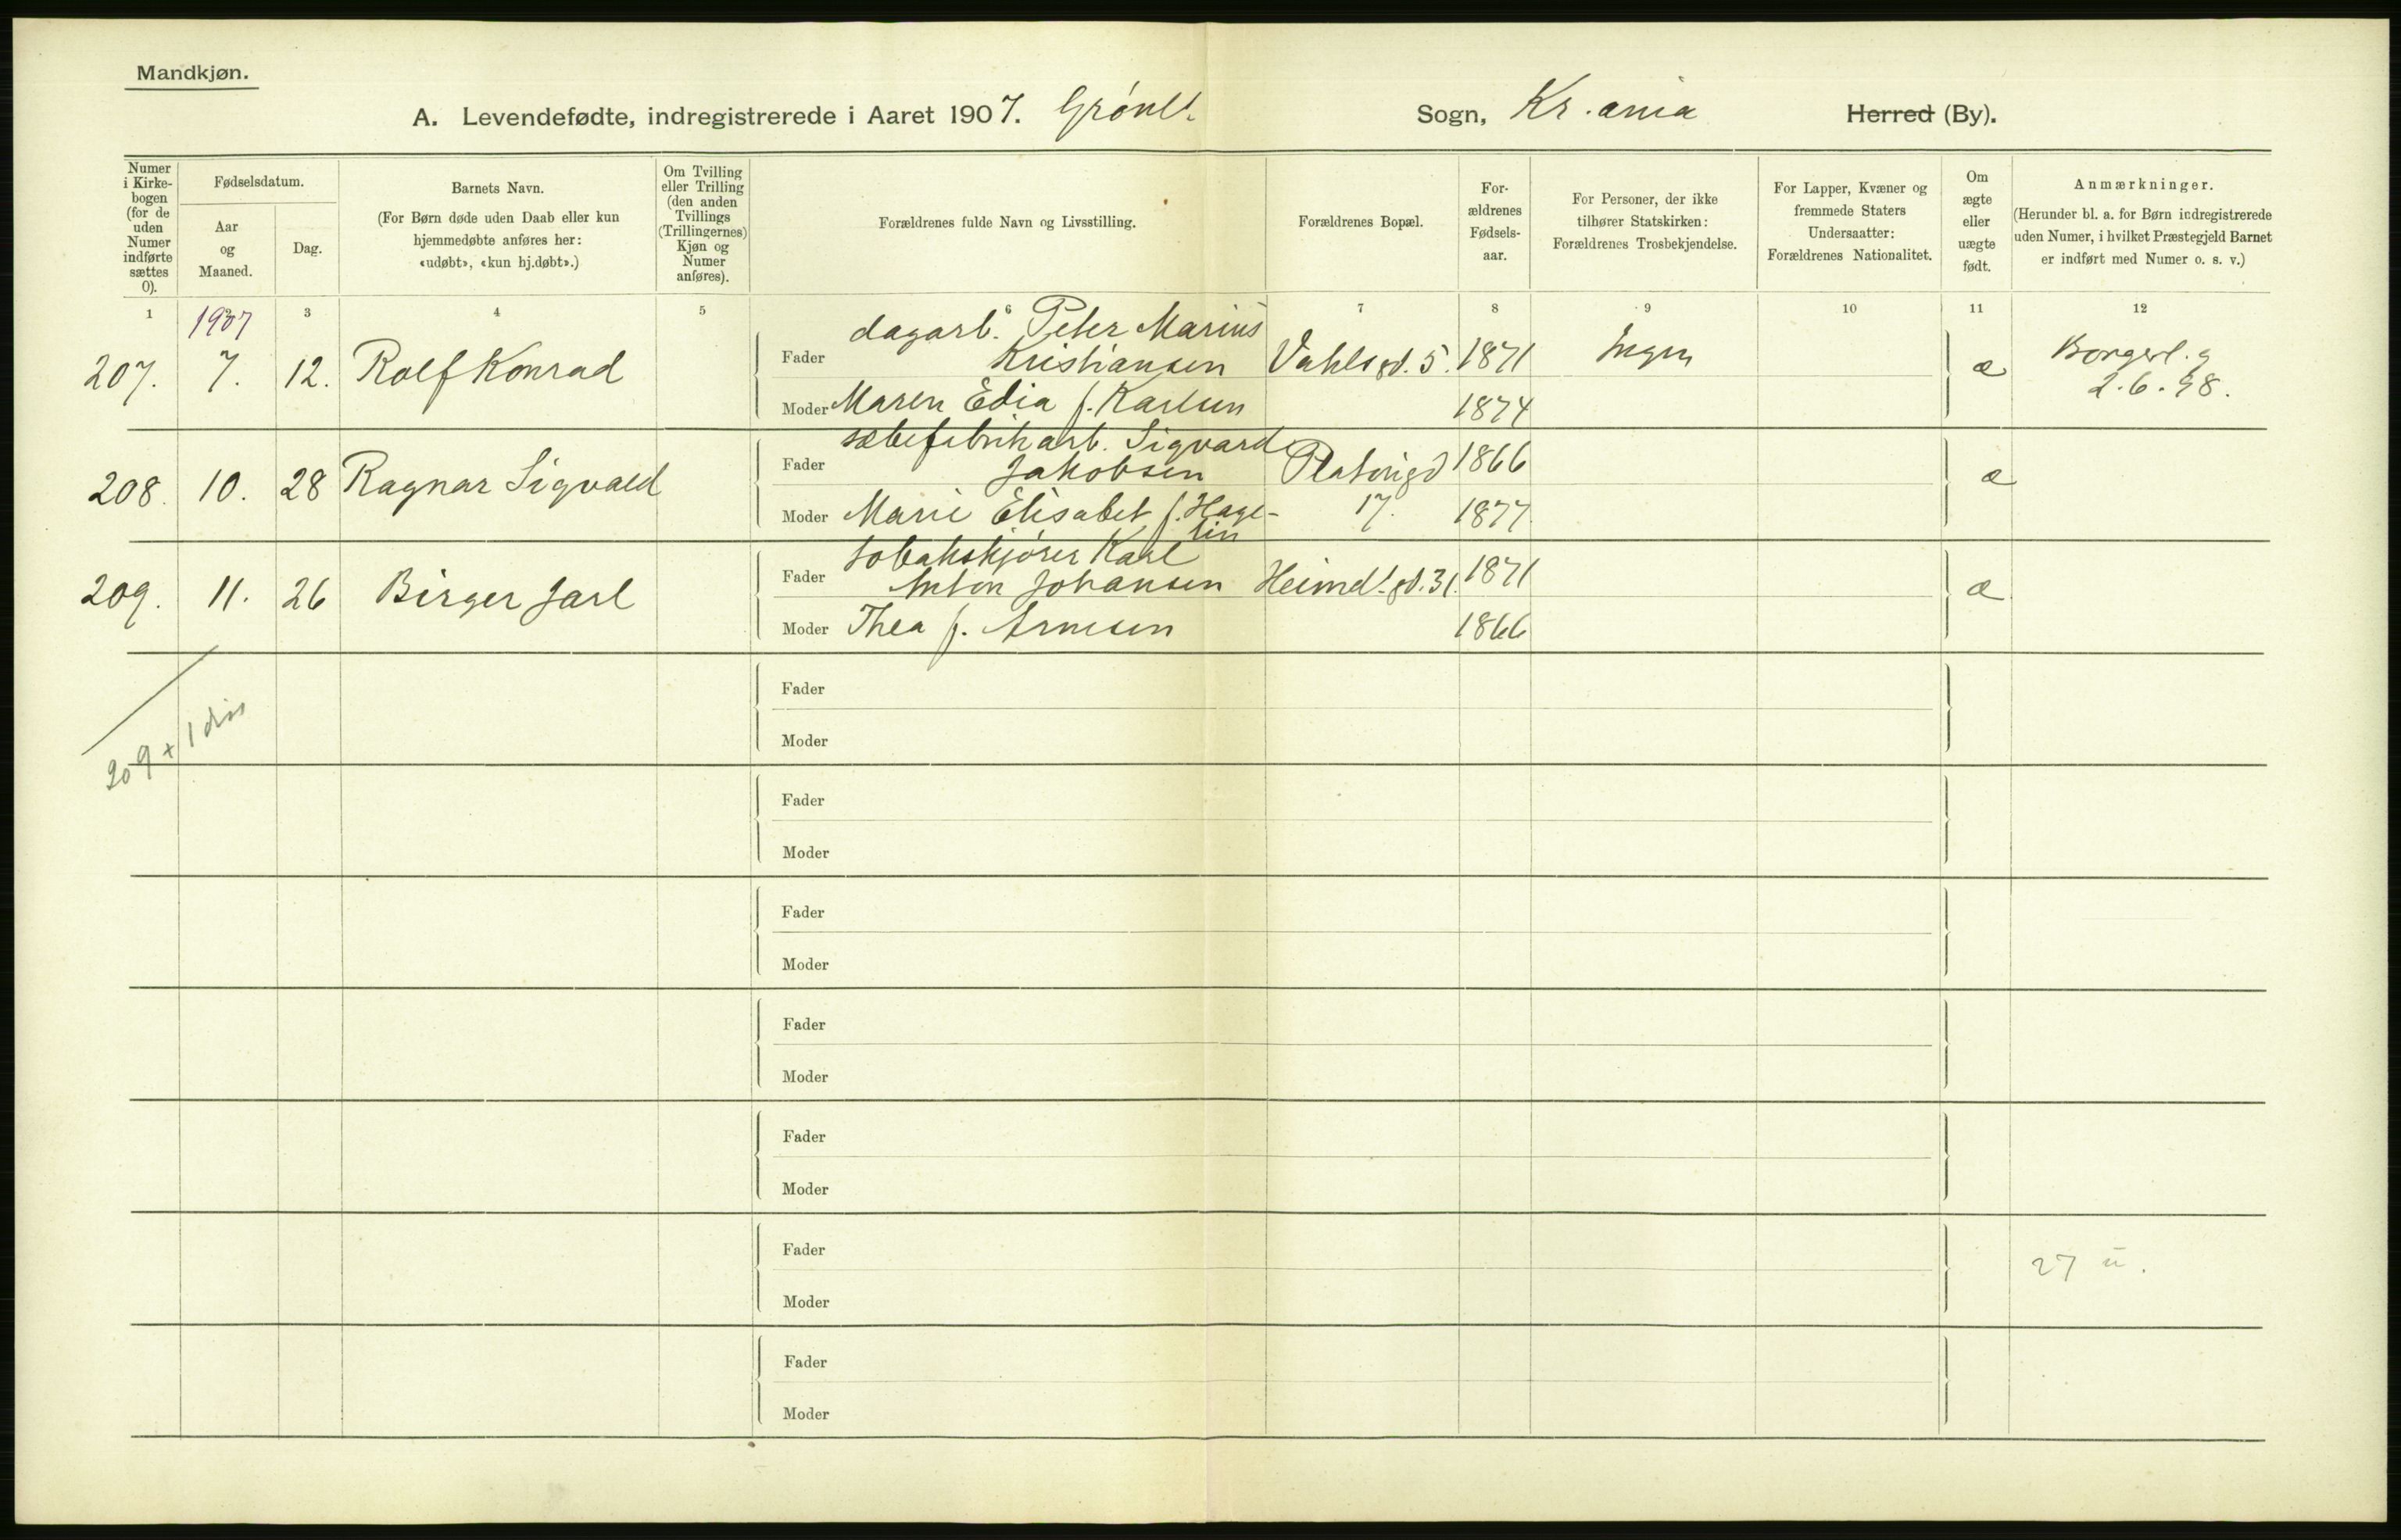 Mandkjøn.
A. Levendefødte, indregistrerede i Aaret 1907. Grønl. Sogn, Kr.ania Herred (By).
Numer i Kirke-bogen (for de uden Numer indførte sættes 0).
Fødselsdatum.
Aar og Maaned.
Dag.
Barnets Navn.
(For Børn døde uden Daab eller kun hjemmedøbte anføres her: «udøbt», «kun hj.døbt».)
Om Tvilling eller Trilling (den anden Tvillings (Trillingernes) Kjøn og Numer anføres).
Forældrenes fulde Navn og Livsstilling.
Forældrenes Bopæl.
For-ældrenes Fødsels-aar.
For Personer, der ikke tilhører Statskirken: Forældrenes Trosbekjendelse.
For Lapper, Kvæner og fremmede Staters Undersaatter: Forældrenes Nationalitet.
Om ægte eller uægte født.
Anmærkninger.
(Herunder bl. a. for Børn indregistrerede uden Numer, i hvilket Præstegjeld Barnet er indført med Numer o. s. v.)
1 2 3 4 5 6 7 8 9 10 11 12
1907
207. 7. 12. Rolf Konrad
Fader dagarb. Peter Marius Kristiansen Vahls gd. 5. 1871 Ingen æ Borgerl. g 2.6.98.
Moder Maren Edia f. Karlsen 1874
208. 10. 28 Ragnar Sigvald
Fader sæbefabrikarb. Sigvard Jakobsen Platougd 17. 1866 æ
Moder Marie Elisabet f. Hage-lin 1877.
209. 11. 26 Birger Jarl
Fader tobakskjører Karl Anton Johansen Heimd.gd. 31. 1871 æ
Moder Thea f. Arnesen 1866
209 + 1 dis
Fader
Moder
Fader
Moder
Fader
Moder
Fader
Moder
Fader
Moder
Fader
Moder
27 u.
Fader
Moder